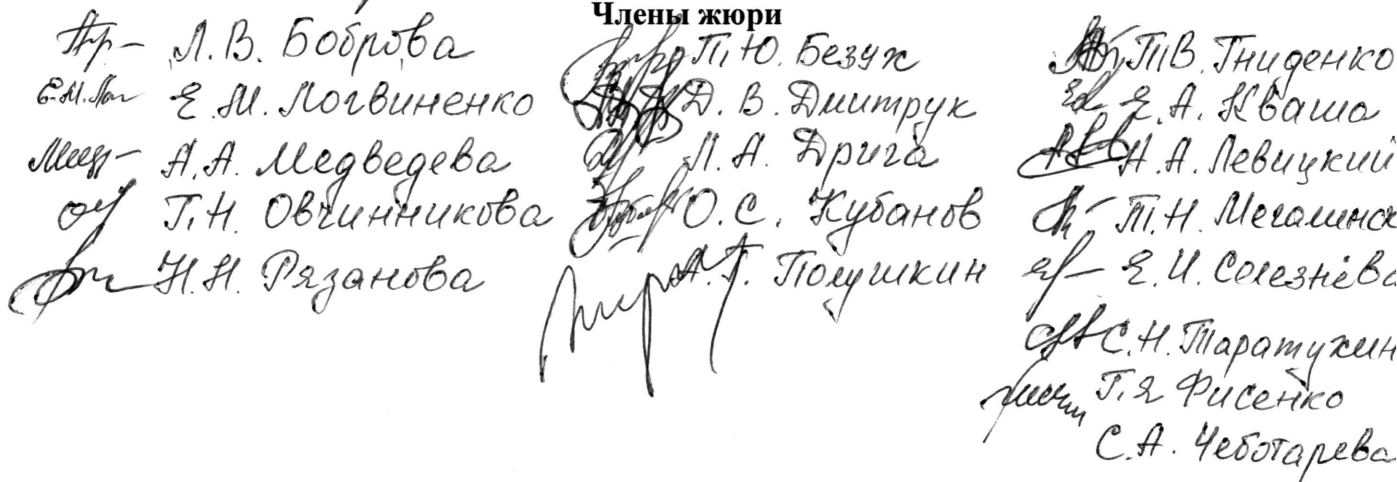 Члены жюри
Л.В. Боброва
Е.М. Логвиненко
А.А. Медведева
Т.Н. Овчинникова
Н.Н. Рязанова
П.Ю. Безух
Д.В. Дмитрук
Л.А. Дрига
О.С. Кубанов
А.Г. Полушкин
Т.В. Гниденко
Е.А. Кваша
А.А. Левицкий
Т.Н. Мегалинск
Е.И. Селезнёва
С.Н. Таратухин
Г.Я Фисенко
С.А. Чеботарева